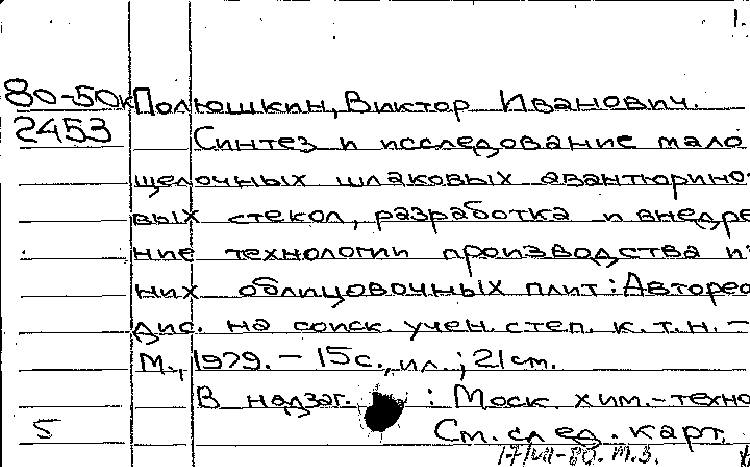 1.
80-50к Полюшкин, Виктор Иванович.
2453 Синтез и исследование мало
щелочных шлаковых авантюрино-
вых стекол, разработка и внедре
ние технологии производства из
них облицовочных плит: Автореф
дис. на соиск. учен. степ. к.т.н. –
М., 1979. – 15с., ил.; 21 см.
В надзаг. : Моск. хим.-техно
5 См. след. карт.
17/VII-80. М.З.